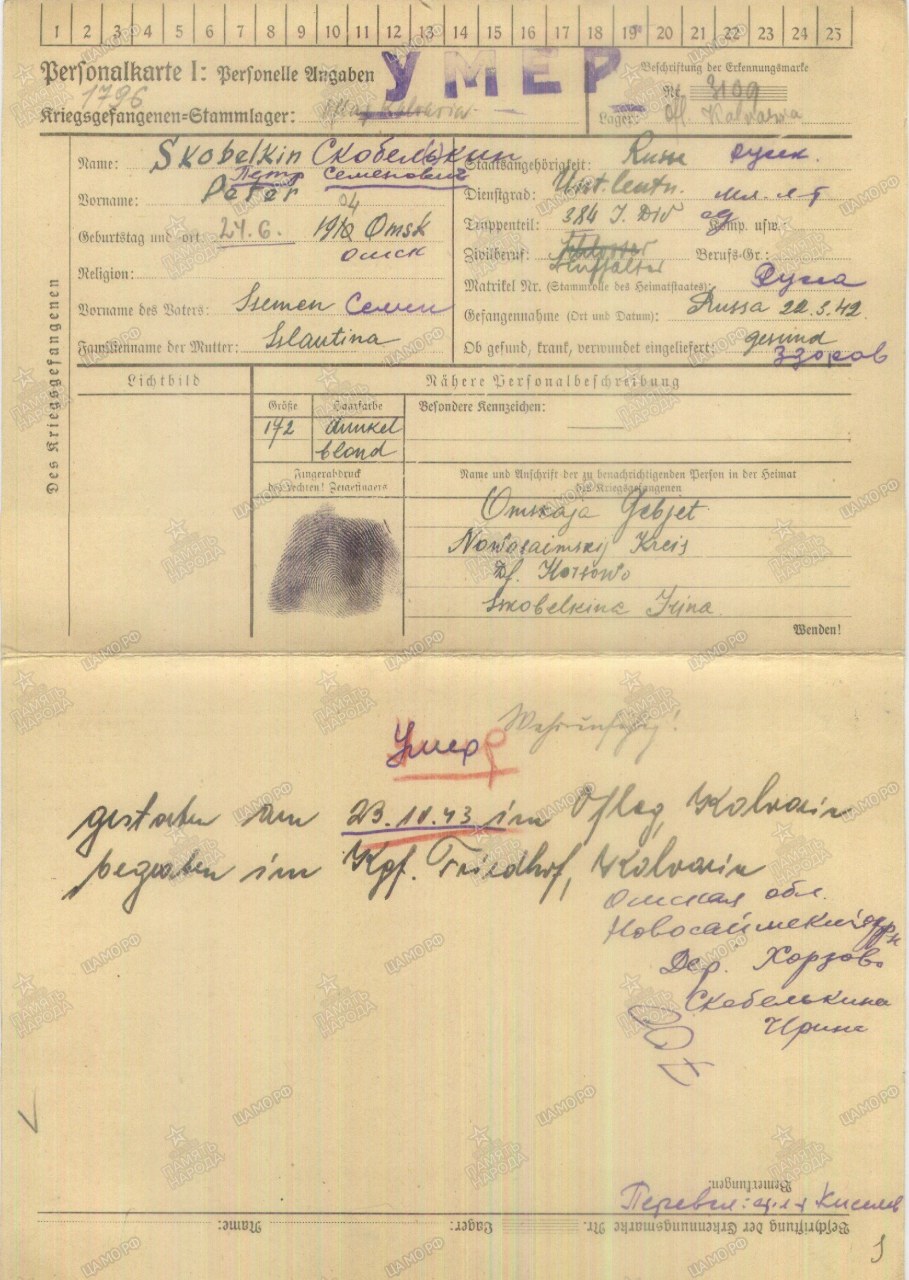 1 2 3 4 5 6 7 8 9 10 11 12 13 14 15 16 17 18 19 20 21 22 23 24 25
Personalkarte I: Personelle Angaben
УМЕР
Beschriftung der Erkennungsmarke
1796
Nr. 3109
Kriegsgefangenen-Stammlager:
Lager: Ofl. Kalvaria
Des Kriegsgefangenen
Name: Skobelkin Скобелькин
Staatsangehörigkeit: Russe русск.
Петр Семенович
Vorname: Peter
Dienstgrad: Unt. Leutn. мл. л-т
04
Truppenteil: 384 J. Div Komp. usw.:
Geburtstag und ort 24.6. Omsk
Омск
Zivilberuf: Berufs-Gr.:
Religion:
Matrikel Nr. (Stammrolle des Heimatstaates):
Vorname des Vaters: Ssemen Семен
Русса
Gefangennahme (Ort und Datum): Russa 22.3.42
Familienname der Mutter: Sslautina
Ob gesund, krank, verwundet eingeliefert: gesund
здоров
Lichtbild
Nähere Personalbeschreibung
Größe
Haarfarbe
Besondere Kennzeichen:
172
dunkel
blond
Fingerabdruck
des rechten! Zeigefingers
Name und Anschrift der zu benachrichtigenden Person in der Heimat
des Kriegsgefangenen
Omskaja Gebjet
Nowosaimskij Kreis
Df. Horsowo
Sskobelkina Irina
Wenden!
Wehrunfähig!
Умер
gestorben am 23.10.43 im Oflag Kalvarin
begraben im Kgf. Friedhof, Kalvarin
Омская обл.
Новосаимский р-н
Дер. Хорзово
Скобелькина
Ирина
Bemerkungen:
Перевел: Киселев
Name: Lager: Beschriftung der Erkennungsmarke Nr.
ПАМЯТЬ НАРОДА
ЦАМО РФ